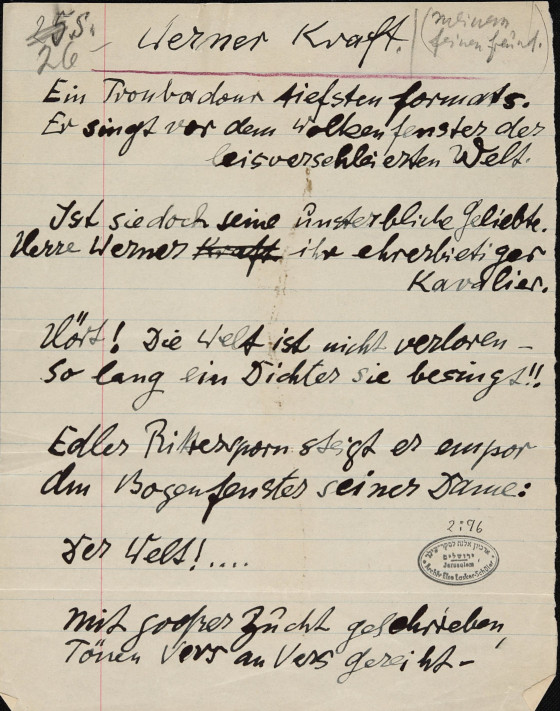 25.S.
26
Werner Kraft.
(meinem
feinen Freund.
Ein Troubadour tiefsten formats.
Er singt vor dem Wolkenfenster der
leisverschleierten Welt.
Ist sie doch seine unsterbliche Geliebte.
Herre Werner Kraft ihr ehrerbietiger
Kavalier.
Hört! Die Welt ist nicht verloren –
So lang ein Dichter sie besingt!!
Edler Rittersporn steigt er empor
Am Bogenfenster seiner Dame:
Der Welt!....
2:96
ארכיון אלזה לסקר-שילר
ירושלים
Jerusalem
Archiv Else Lasker-Schüler
Mit großer Zucht geschrieben,
Tönen Vers an Vers gereiht –